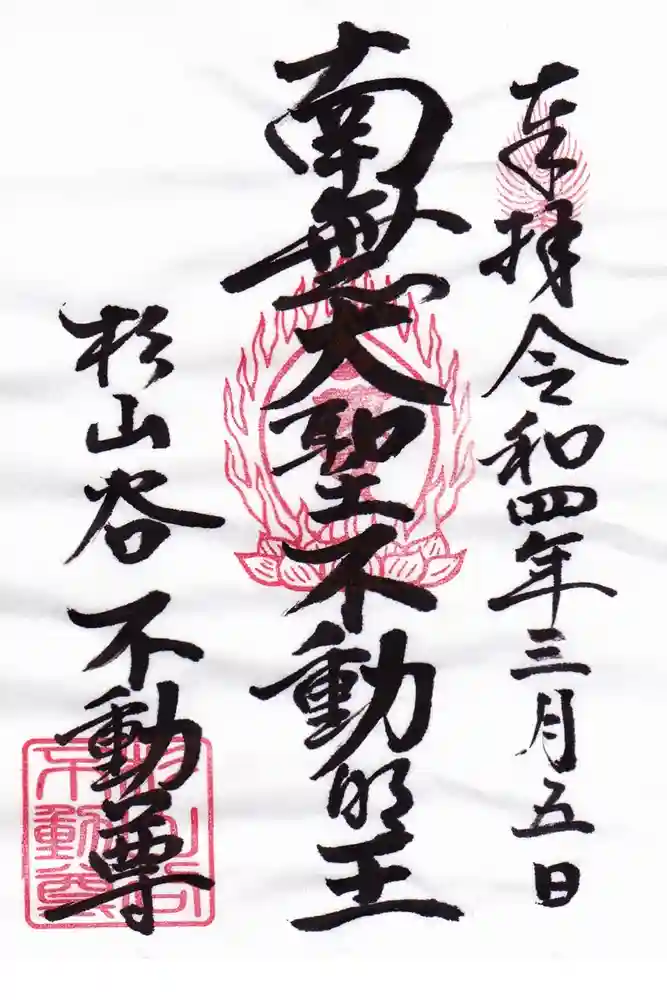 奉拝 令和四年三月五日
南無大聖不動明王
杉山谷不動尊
杉山谷
不動尊